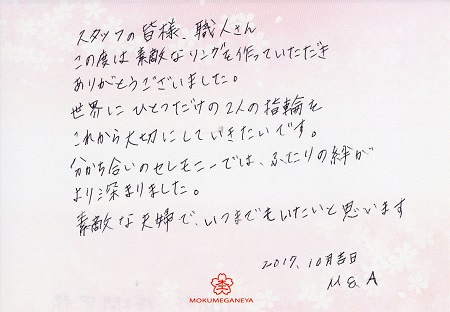 スタッフの皆様、職人さん
この度は素敵なリングを作っていただき
ありがとうございました。
世界にひとつだけの2人の指輪を
これから大切にしていきたいです。
分かち合いのセレモニーでは、ふたりの絆が
より深まりました。
素敵な夫婦で、いつまでもいたいと思います
2017、10月吉日
M & A
MOKUMEGANEYA